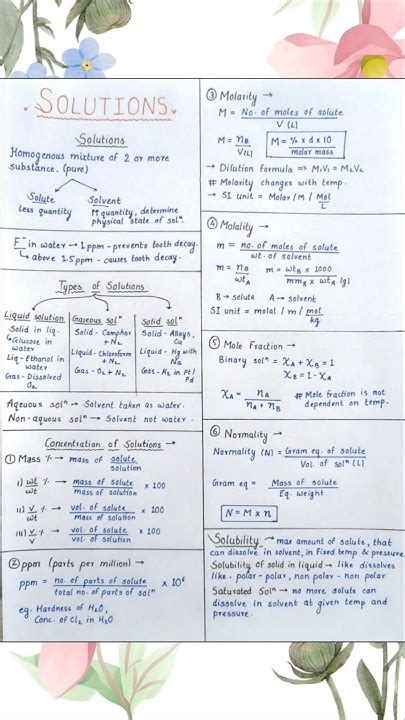 SOLUTIONS
Solutions
Homogenous mixture of 2 or more
substance. (pure)
Solute
Less quantity
Solvent
↑↑ quantity, determine
physical state of solⁿ.
F⁻ in water → 1 ppm - prevents tooth decay.
above 1.5ppm - causes tooth decay.
Types of Solutions
Liquid solution
Solid in liq.
Glucose in
water
Liq - Ethanol in
water
Gas - Dissolved
O₂
Gaseous solⁿ
Solid - Camphor
+ N₂
Liquid - Chloroform
+ N₂
Gas - O₂ + N₂
Solid solⁿ
Solid - Alloys,
Cu
Liquid - Hg with
Na
Gas - H₂ in Pt/
Pd
Aqueous solⁿ → Solvent taken as water.
Non-aquous solⁿ → Solvent not water.
Concentration of Solutions →
① Mass % → mass of solute/solution
i) wt/wt % → mass of solute/mass of solution × 100
ii) v/wt % → vol. of solute/mass of solution × 100
iii) v/v % → vol. of solute/vol. of solution × 100
② ppm (parts per million) →
ppm = no. of parts of solute/total no. of parts of solⁿ × 10⁶
eg. Hardness of H₂O,
Conc. of Cl₂ in H₂O
③ Molarity →
M = No. of moles of solute/V (L)
M = n_B/V(L)
M = % × d × 10/molar mass
→ Dilution formula ⇒ M₁V₁ = M₂V₂
# Molarity changes with temp.
→ SI unit = Molar / M / Mol/L
④ Molality →
m = no. of moles of solute/wt. of solvent
m = n_B/wt_A
m = wt_B × 1000/mm_B × wt_A (g)
B → solute A → solvent
SI unit = molal / m / mol/kg
⑤ Mole Fraction →
Binary solⁿ = χ_A + χ_B = 1
χ_B = 1 - χ_A
χ_A = n_A/n_A + n_B
# Mole fraction is not
dependent on temp.
⑥ Normality →
Normality (N) = Gram eq. of solute/Vol. of solⁿ (L)
Gram eq = Mass of solute/Eq. weight
N = M × n
Solubility - max amount of solute, that
can dissolve in solvent, in fixed temp & pressure
Solubility of solid in liquid → like dissolves
like. polar - polar, non polar - non polar
Saturated Solⁿ → no more solute can
dissolve in solvent at given temp and
pressure.